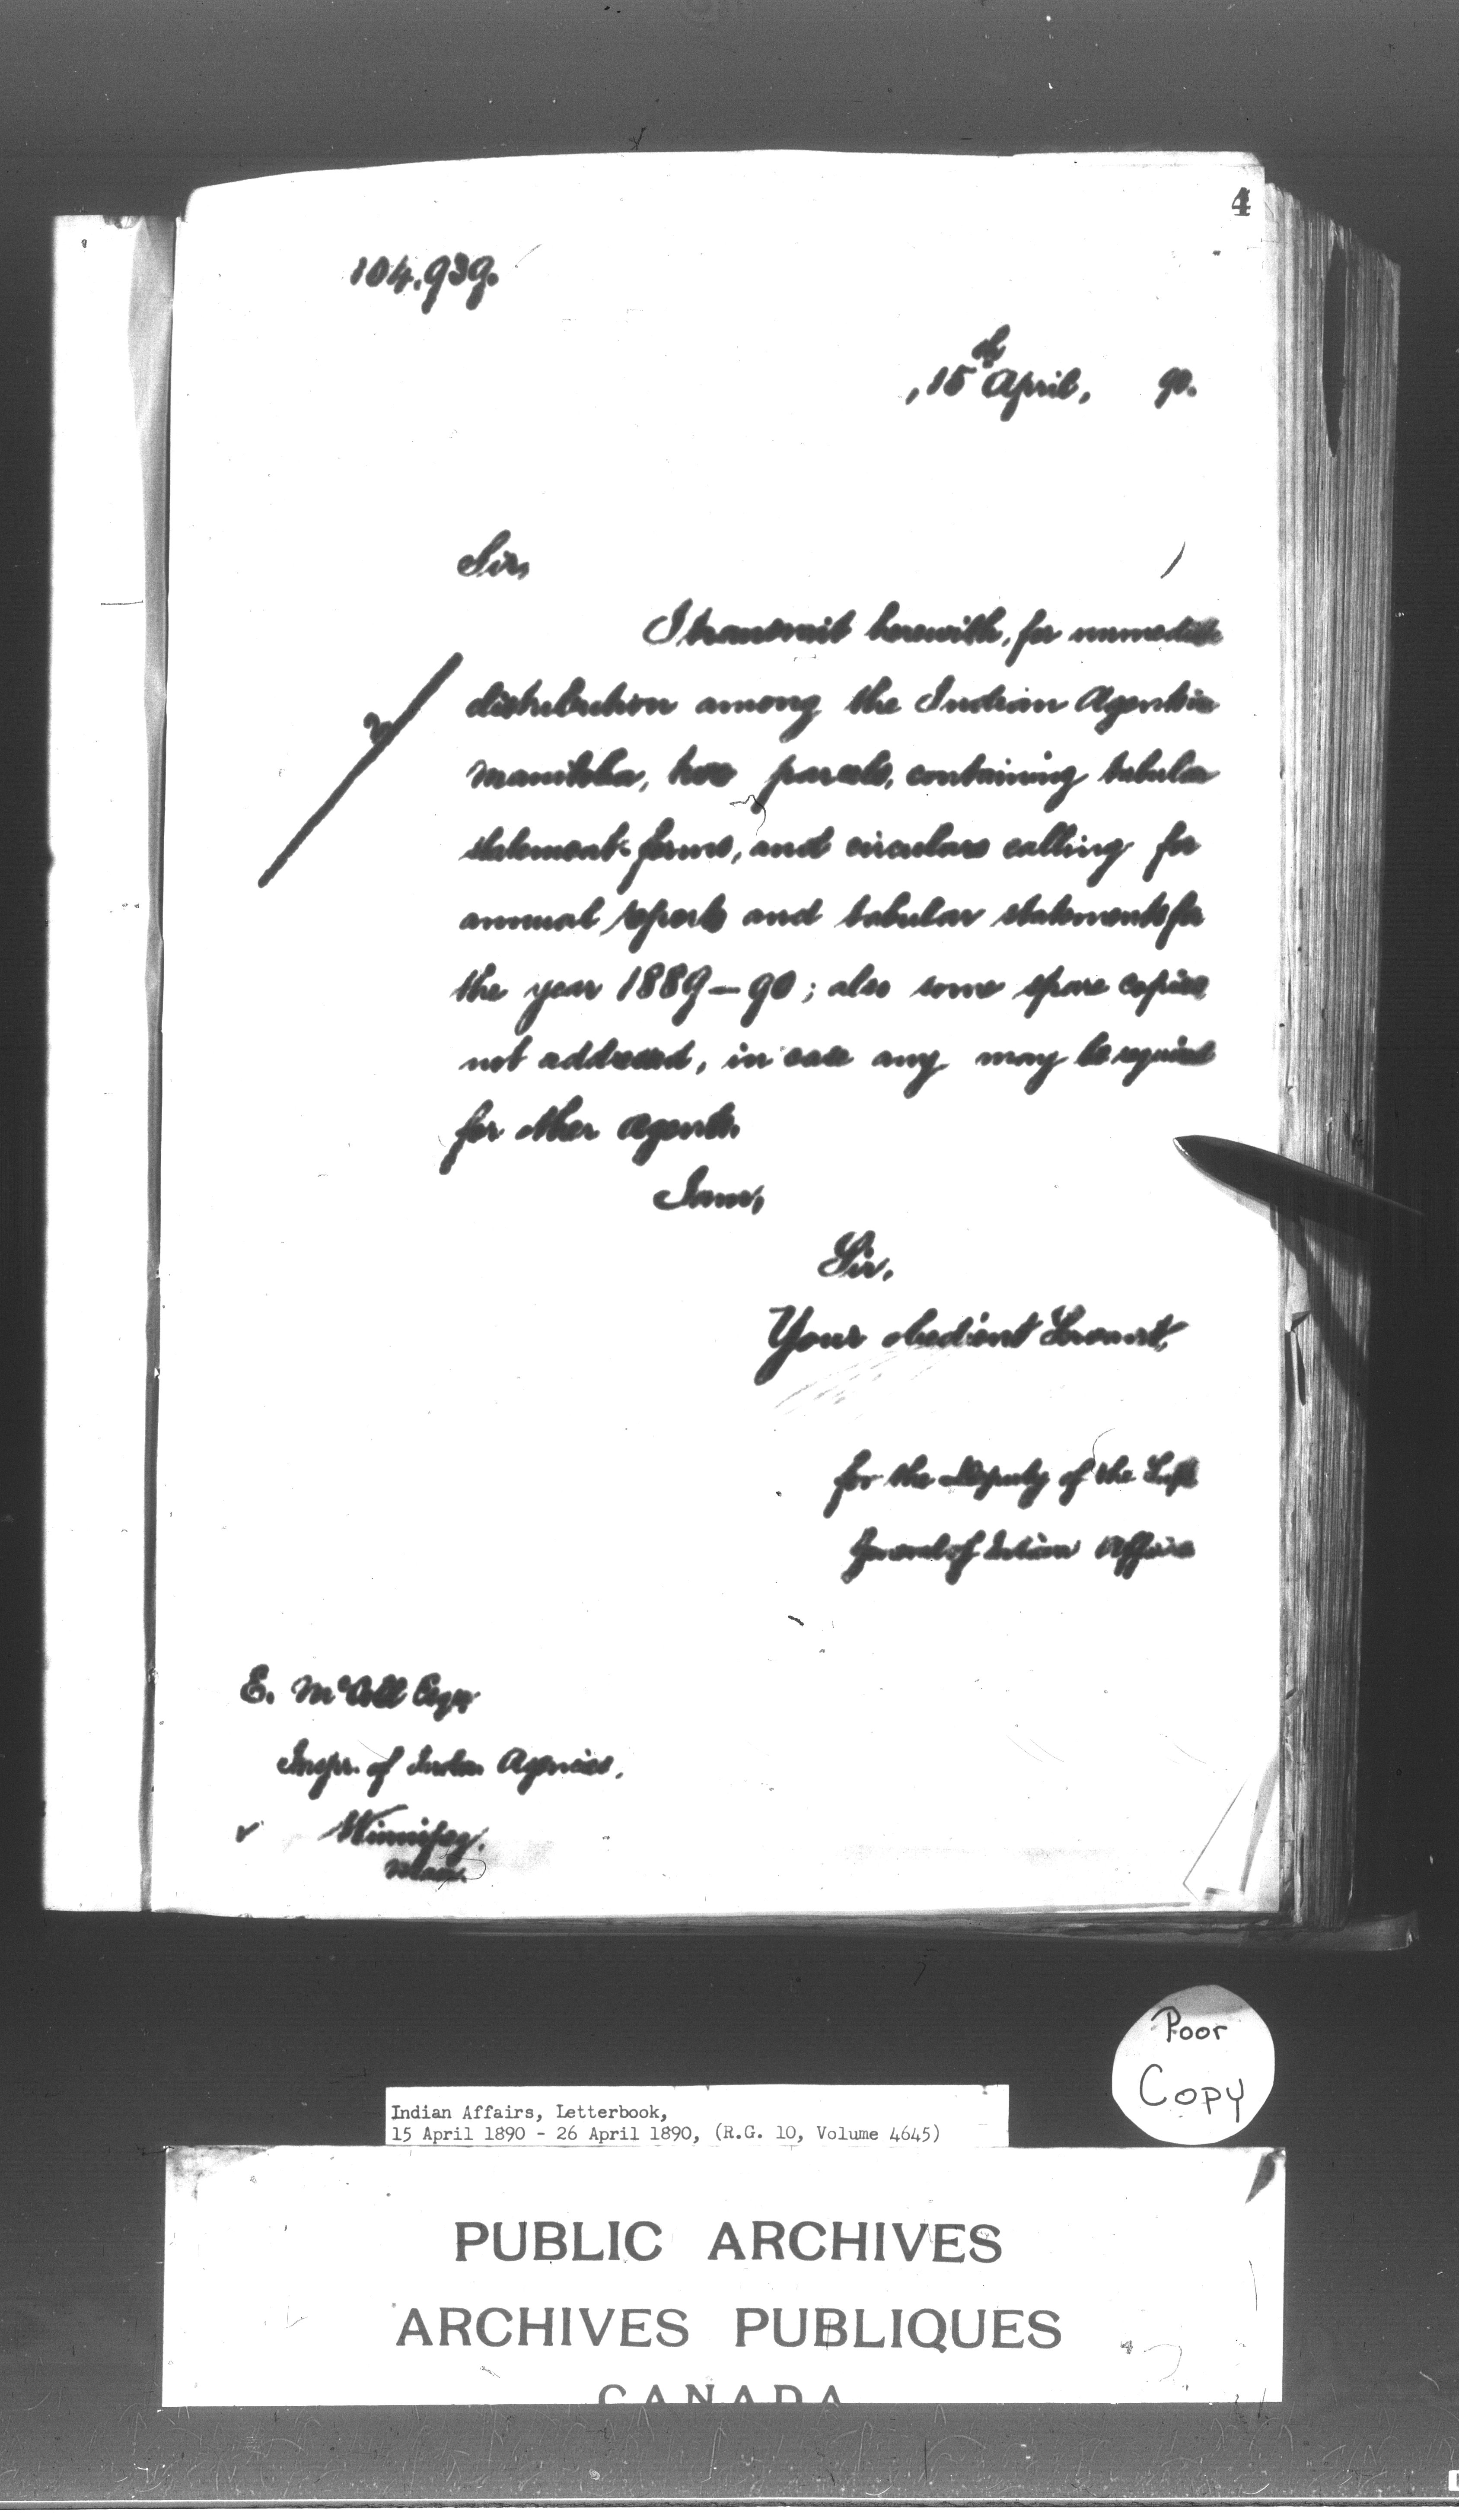 4
104.939.
15th April, 90.
Sir,
I transmit herewith, for immediate
distribution among the Indian Agents in
Manitoba, two parcels, containing tabular
statement forms, and circulars calling for
annual reports and tabular statements for
the year 1889-90; also some spare copies
not addressed, in case any may be required
for other agents.
I am,
Sir,
Your obedient Servant,
for the Deputy of the Supt
General of Indian Affairs
E. McColl Esqr
Inspr. of Indian Agencies.
Winnipeg.
Man.
Poor
Copy
Indian Affairs, Letterbook,
15 April 1890 - 26 April 1890, (R.G. 10, Volume 4645)
PUBLIC ARCHIVES
ARCHIVES PUBLIQUES
CANADA